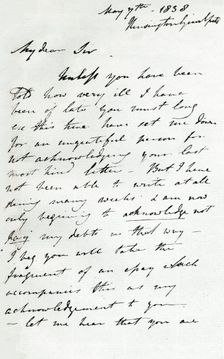 May 7th 1838
Kensington Gravel Pits
My dear Sir
Unless you have been
told how very ill I have
been of late you must long
ere this time have set me down
for an ungrateful person for
not acknowledging your last
most kind letter — But I have
not been able to write at all
during many weeks. I am now
only beginning to acknowledge not
pay my debts in that way —
I beg you will take the
fragment of an essay which
accompanies this as my
acknowledgement to you —
— let me hear that you are